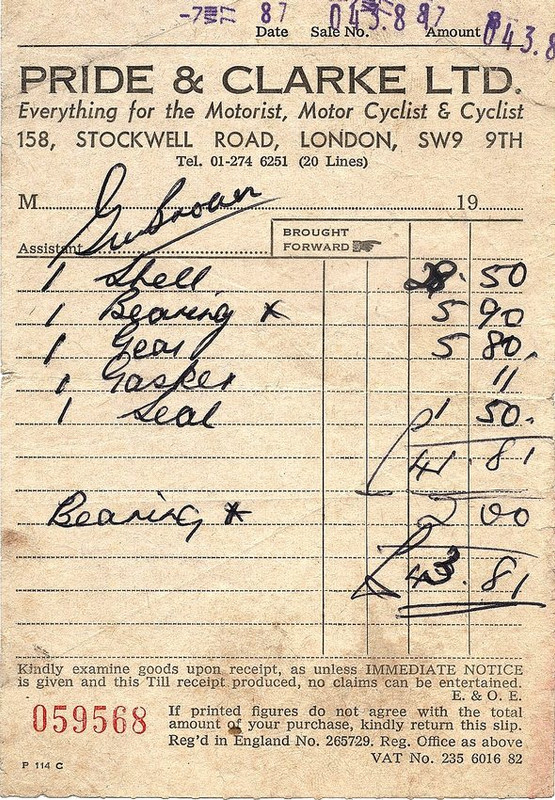 -7 87 043.8 87 043.8
Date Sale No. Amount
PRIDE & CLARKE LTD.
Everything for the Motorist, Motor Cyclist & Cyclist
158, STOCKWELL ROAD, LONDON, SW9 9TH
Tel. 01-274 6251 (20 Lines)
M 19
Brown
Assistant
BROUGHT
FORWARD
1 Shell 28.50
1 Bearing * 5 90
1 Gear 5 80.
1 Gasket 11
1 Seal 1 50.
£41.81
Bearing * 2 00
£43.81
Kindly examine goods upon receipt, as unless IMMEDIATE NOTICE
is given and this Till receipt produced, no claims can be entertained.
E. & O. E.
059568
If printed figures do not agree with the total
amount of your purchase, kindly return this slip.
Reg'd in England No. 265729. Reg. Office as above
P 114 C VAT No. 235 6016 82